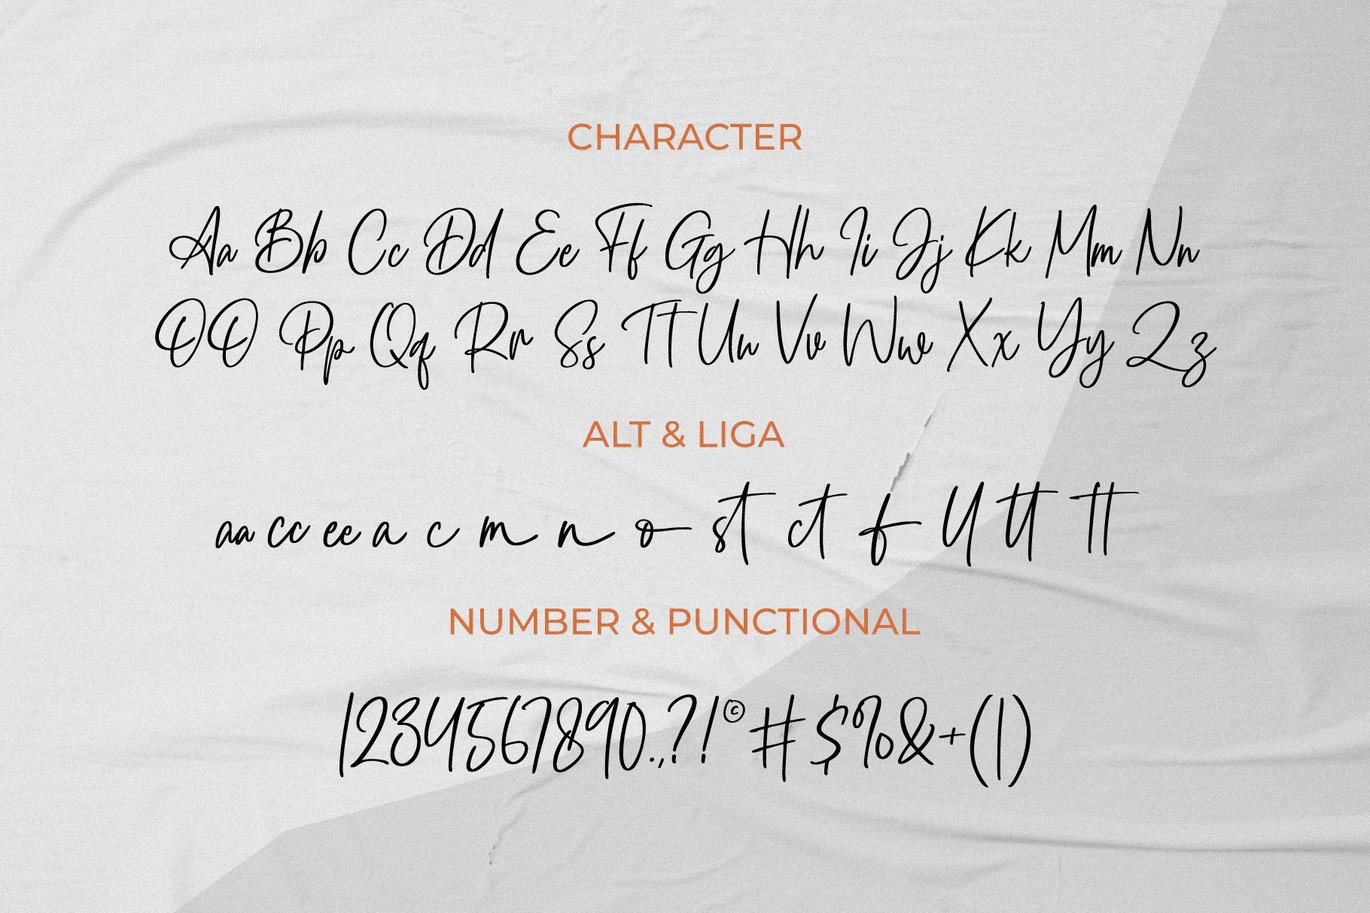 CHARACTER
Aa Bb Cc Dd Ee Ff Gg Hh Ii Jj Kk Mm Nn
OO Pp Qq Rr Ss Tt Uu Vv Ww Xx Yy Zz
ALT & LIGA
aa cc ee a c m n o st ct f ll tt tt
NUMBER & PUNCTIONAL
1234567890.,?!©#$%&+(|)